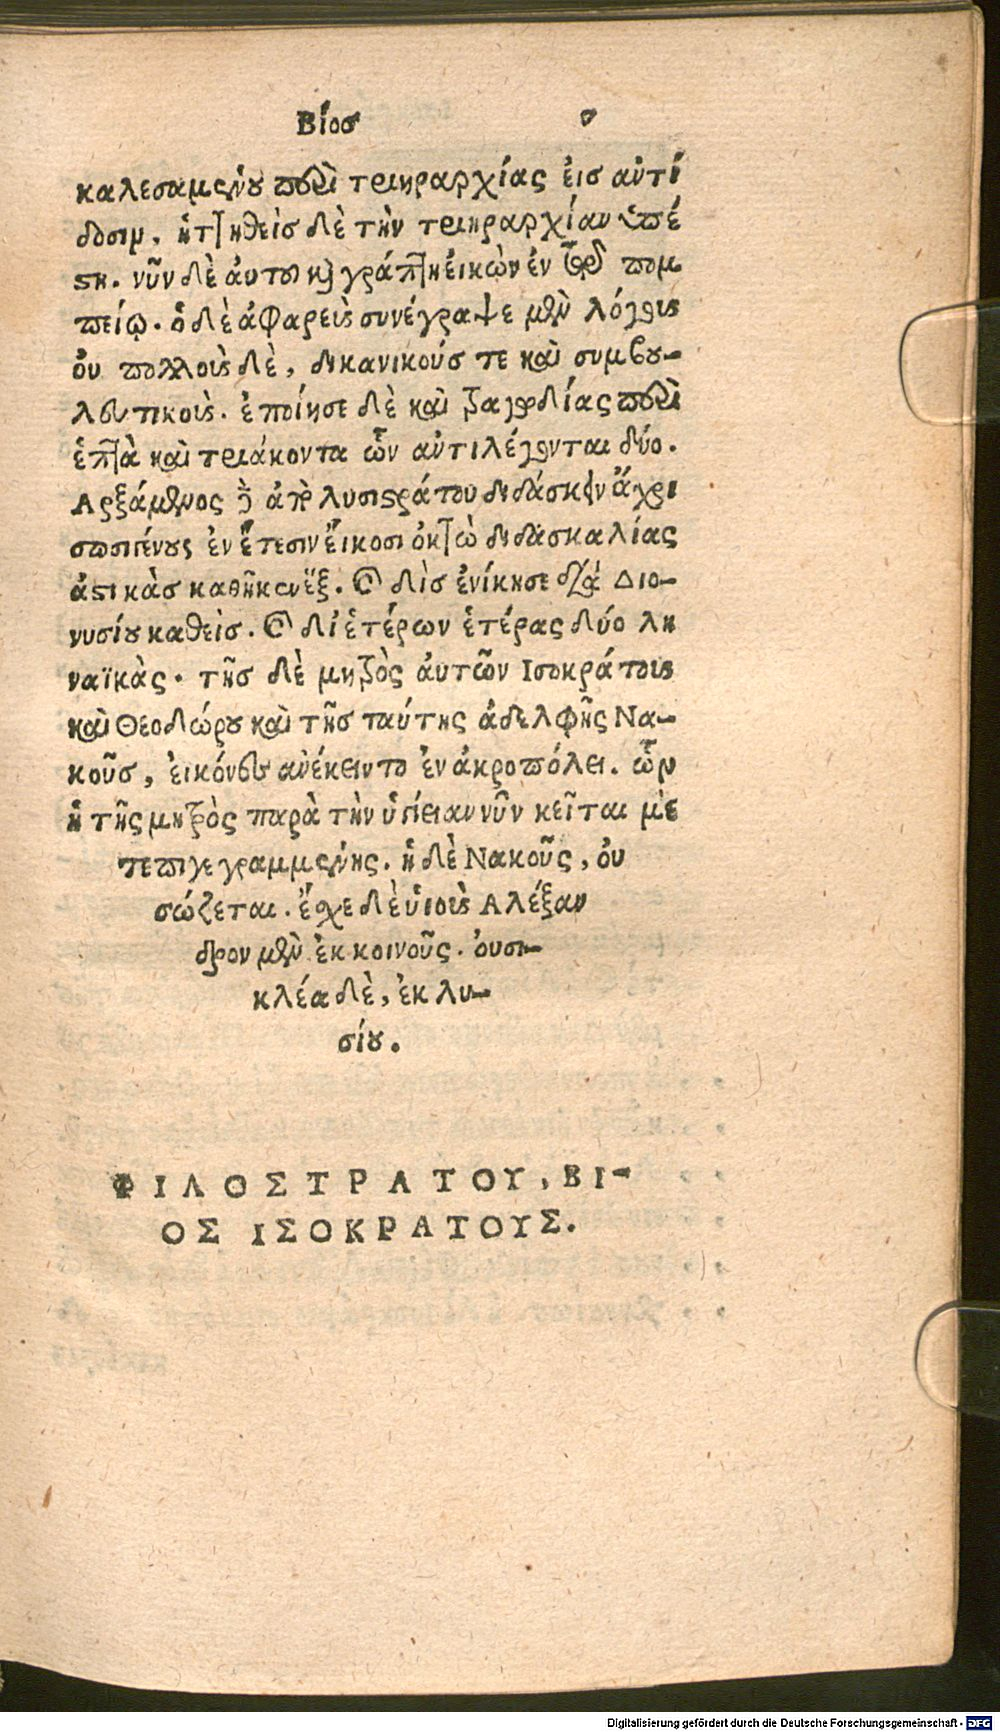 Βίοσ ο
καλεσαμένου περὶ τριηραρχίας ἐισ αὐτί
δοσιμ, ἡττηθεὶσ δὲ τὴν τριηραρχίαν ὑπέ
στη. νῦν δὲ ἀυτοῦ καὶ γράπτη ἐικὼν ἐν τῷ πομ
πείῳ. ὁ δὲ ἀφαρεὺς συνέγραψε μὲν λόγους
ὀυ πολλοὺς δὲ, δικανικούσ τε καὶ συμβου-
λευτικοὺς. ἐποίησε δὲ καὶ τραγῳδίας περὶ
ἑπτὰ καὶ τριάκοντα ὧν αὐτιλέγονται δύο.
Αρξάμενος δὲ ἀπὸ λυσιστράτου διδάσκειν ἄχρι
σωσιγένους ἐν ἔτεσιν ἔικοσι ὀκτὼ διδασκαλίας
ἀστικὰσ καθῆκεν ἕξ. καὶ δὶσ ἐνίκησε διὰ Διο-
νυσίου καθεὶσ. καὶ δι ἑτέρων ἑτέρας δύο λη
ναϊκὰς. τῆσ δὲ μητρὸς ἀυτῶν Ισοκράτους
καὶ Θεοδώρου καὶ τῆσ ταύτης ἀδελφῆς Να-
κοῦσ, ἐικόνες ανέκειντο ἐν ἀκροπόλει. ὧν
ἡ τῆς μητρὸς παρὰ τὴν ὑγίειαν νῦν κεῖται μὲ
τεπιγεγραμμένης. ἡ δὲ Νακοῦς, ὀυ
σώζεται. ἔσχε δὲ ὑιοὺς Αλέξαν
δρον μὲν ἐκ κοινοῦς. ὀυσι-
κλέα δὲ, ἐκ λυ-
σίου.
ΦΙΛΟΣΤΡΑΤΟΥ, ΒΙ-
ΟΣ ΙΣΟΚΡΑΤΟΥΣ.
Digitalisierung gefördert durch die Deutsche Forschungsgemeinschaft - DFG